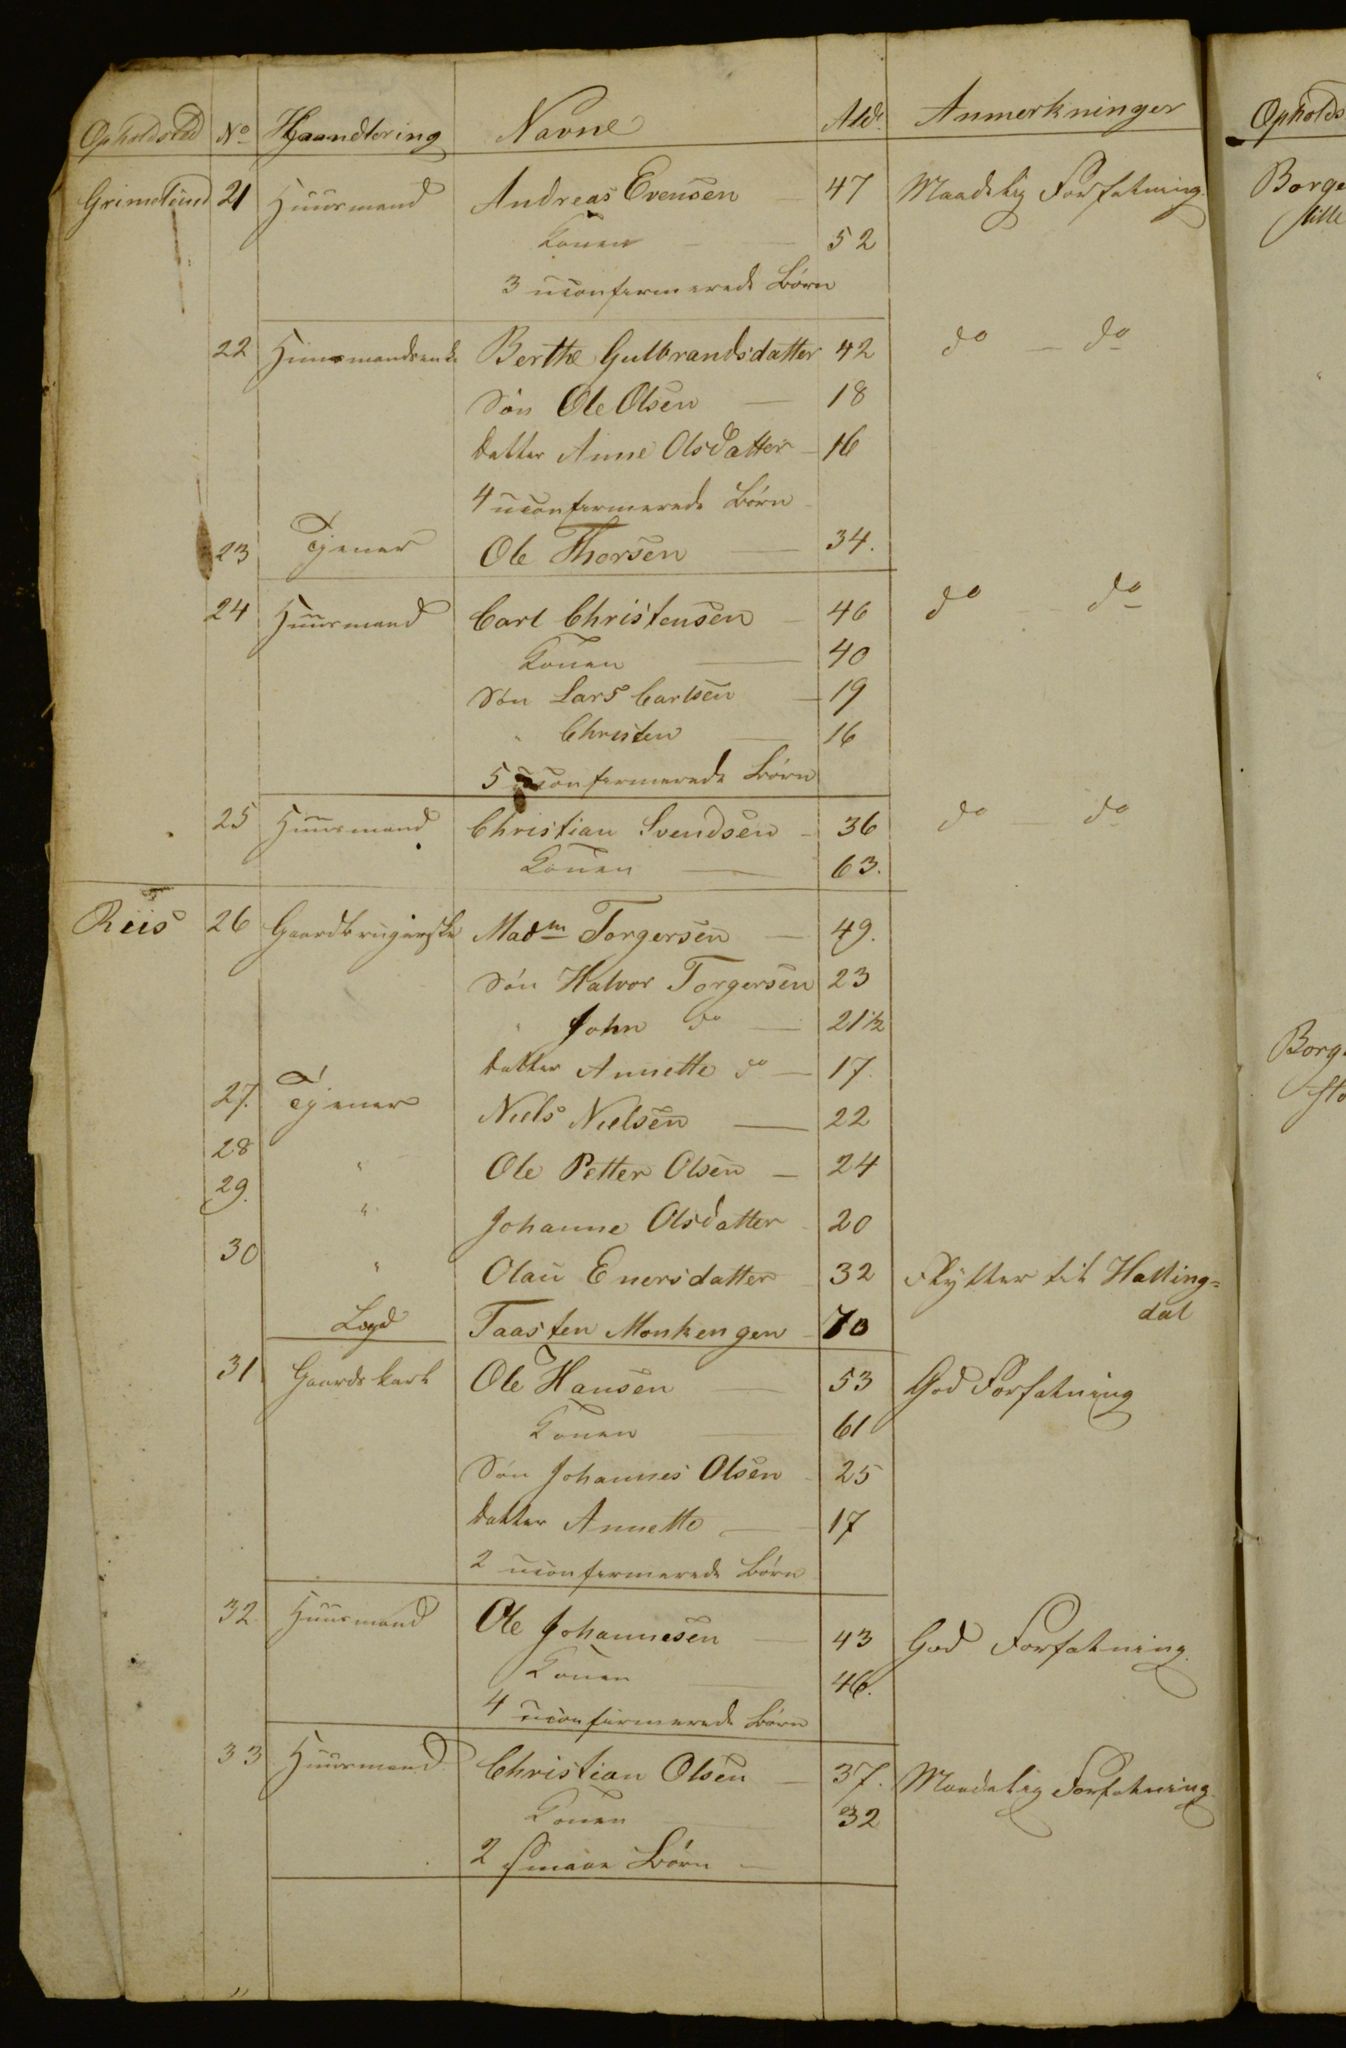 Opholdsted No Haandtering Navne Ald. Anmerkninger
Grimelund 21 Huusmand Andreas Evensen — 47 Maadelig Forfatning
Konen — 52
3 uconfirmerede Børn
22 Huusmandsenke Berthe Gulbrandsdatter 42 do — do
Søn Ole Olsen — 18
datter Anne Olsdatter — 16
4 uconfirmerede Børn
23 Tjener Ole Thorsen — 34.
24 Huusmand Carl Christensen — 46 do — do
Konen — 40
Søn Lars Carlsen — 19
" Christen — 16
5 uconfirmerede Børn
25 Huusmand Christian Svendsen — 36 do — do
Konen — 63.
Riis 26 Gaardbrugerske Madm Torgersen — 49.
Søn Halvor Torgersen 23
" John do — 21½
datter Annette do — 17.
27. Tjener Niels Nielsen — 22
28 " Ole Petter Olsen — 24
29. " Johanne Olsdatter 20
30 " Olau Enersdatter 32 Flytter til Halling=
dal
Lægd Taasten Monkengen 70
31 Gaardskarl Ole Hansen — 53 God Forfatning
Konen — 61
Søn Johannes Olsen 25
datter Annette — 17
2 uconfirmerede Børn
32. Huusmand Ole Johannesen — 43 God Forfatning.
Konen — 46.
4 uconfirmerede Børn
33 Huusmand Christian Olsen — 37. Maadelig Forfatning.
Konen — 32
2 smaae Børn —
Opholds
Borge
lille
Borg